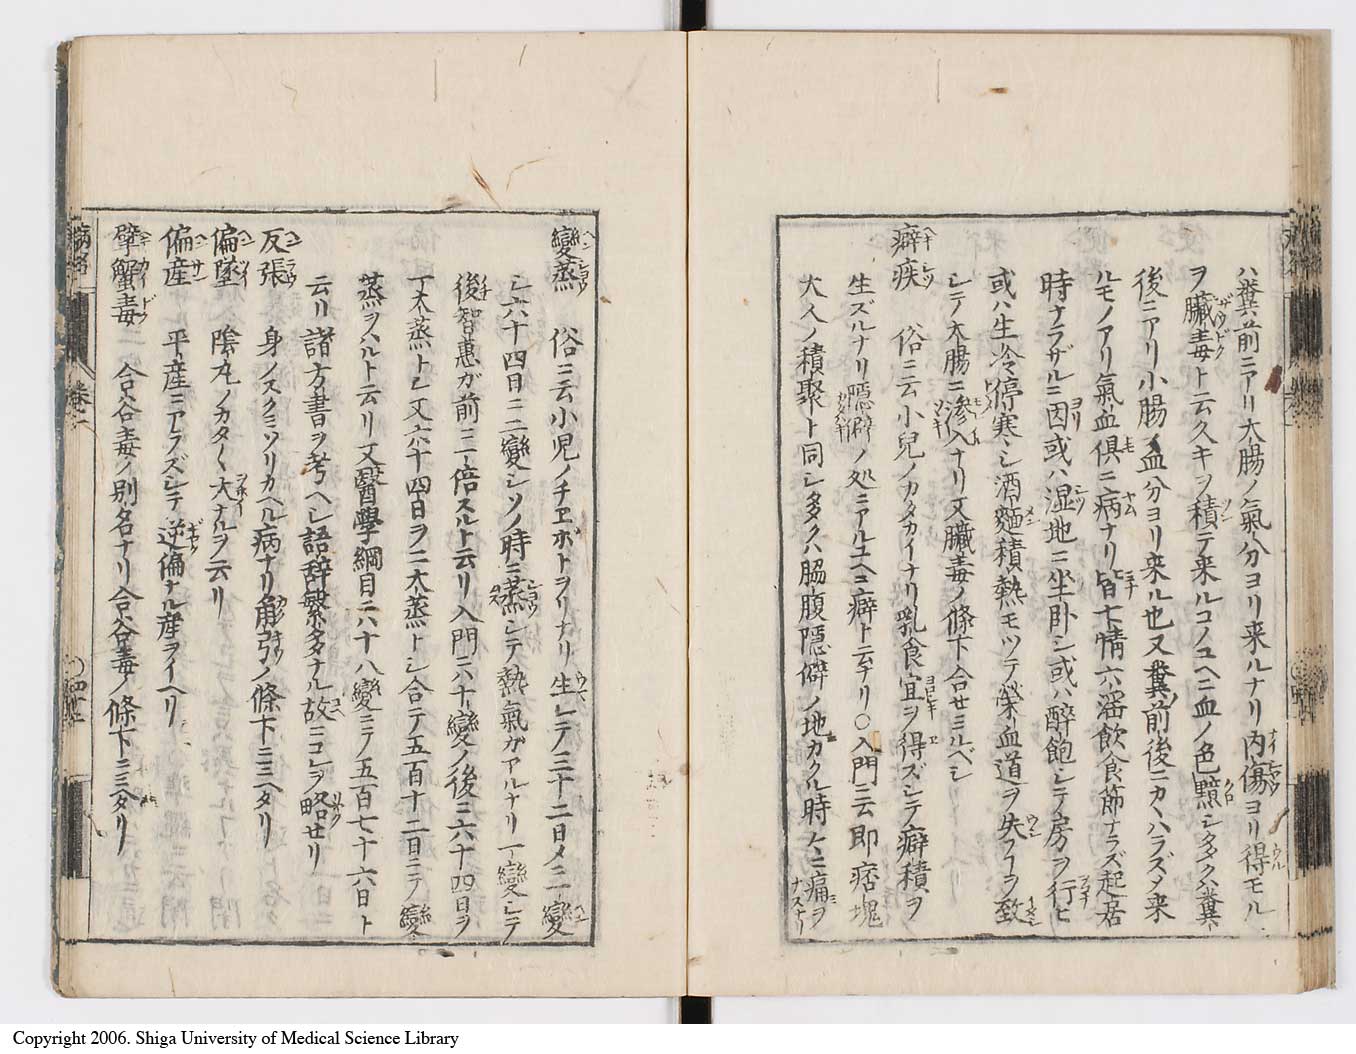 ハ糞前ニアリ大腸ノ氣分ヨリ来ルナリ内傷ヨリ得モル
ヲ臓毒ト云久キヲ積テ来ルコノユヘニ血ノ色黯シ多クハ糞
後ニアリ小腸ノ血分ヨリ来ル也又糞前後ニカヽハラズメ来
ルモノアリ氣血倶ニ病ナリ皆七情六滛飲食節ナラズ起居
時ナラザルニ因或ハ湿地ニ坐卧シ或ハ醉飽シテ房ヲ行ヒ
或ハ生冷停寒シ酒麵積熱モツテ榮血道ヲ失フヿヲ致
シテ大腸ニ滲入ナリ又臓毒ノ條下合セミルベシ
癖疾 俗ニ云小兒ノカタカイナリ乳食宜ヲ得ズシテ癖積ヲ
生ズルナリ隠癖ノ処ニアルユヘニ癖ト云ナリ○入門ニ云即痞塊
大人ノ積聚ト同シ多クハ脇腹隠僻ノ地カクル時々ニ痛ヲ
變蒸 俗ニ云小児ノチヱボトヲリナリ生レテ三十二日メニ一變
シ六十四日ニ二變シソノ時ニ蒸シテ熱氣ガアルナリ一變シテ
後智惠ガ前ニ一倍スルト云リ入門ニ六十變ノ後ニ六十四日ヲ
丁大蒸トシ又六十四日ヲ二大蒸トシ合テ五百十二日ニテ變
蒸ヲハルト云リ又醫學綱目ニ六十八變ミテ五百七十六日ト
云リ諸方書ヲ考ヘシ語辞繁多ナル故ニコレヲ略セリ
反張 身ノスクミソリカヘル病ナリ角弓ノ條下ニミヘタリ
偏墜 陰丸ノカタ〱大ナルヲ云リ
偏産 平産ニアラズシテ逆偏ナル産ヲイヘリ
擘蟹毒 合谷毒ノ別名ナリ合谷毒ノ條下ニミヘタリ
Copyright 2006. Shiga University of Medical Science Library